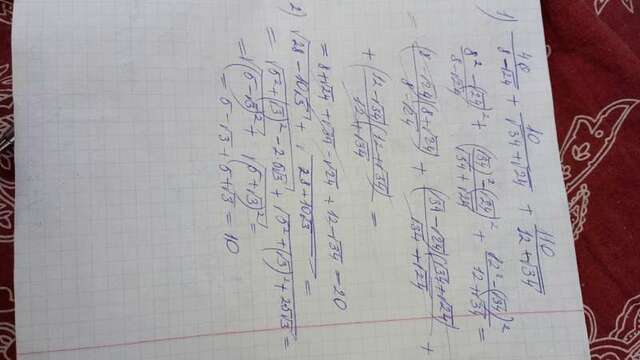 1) 40/(8-√24) + 10/(√34+√24) + 110/(12+√34)
(8²-(√24)²)/(8-√24) + ((√34)²-(√24)²)/(√34+√24) + (12²-(√34)²)/(12+√34) =
= ((8-√24)(8+√24))/(8-√24) + ((√34-√24)(√34+√24))/(√34+√24) +
+ ((12-√34)(12+√34))/(12+√34) =
= 8+√24 + √34 - √24 + 12-√34 = 20
2) √(28-10√3) + √(28-10√3) =
= √(5²+(√3)²-2·5√3) + √(5²+(√3)²+2·5√3) =
= √(5-√3)² + √(5+√3)² =
= 5-√3 + 5+√3 = 10